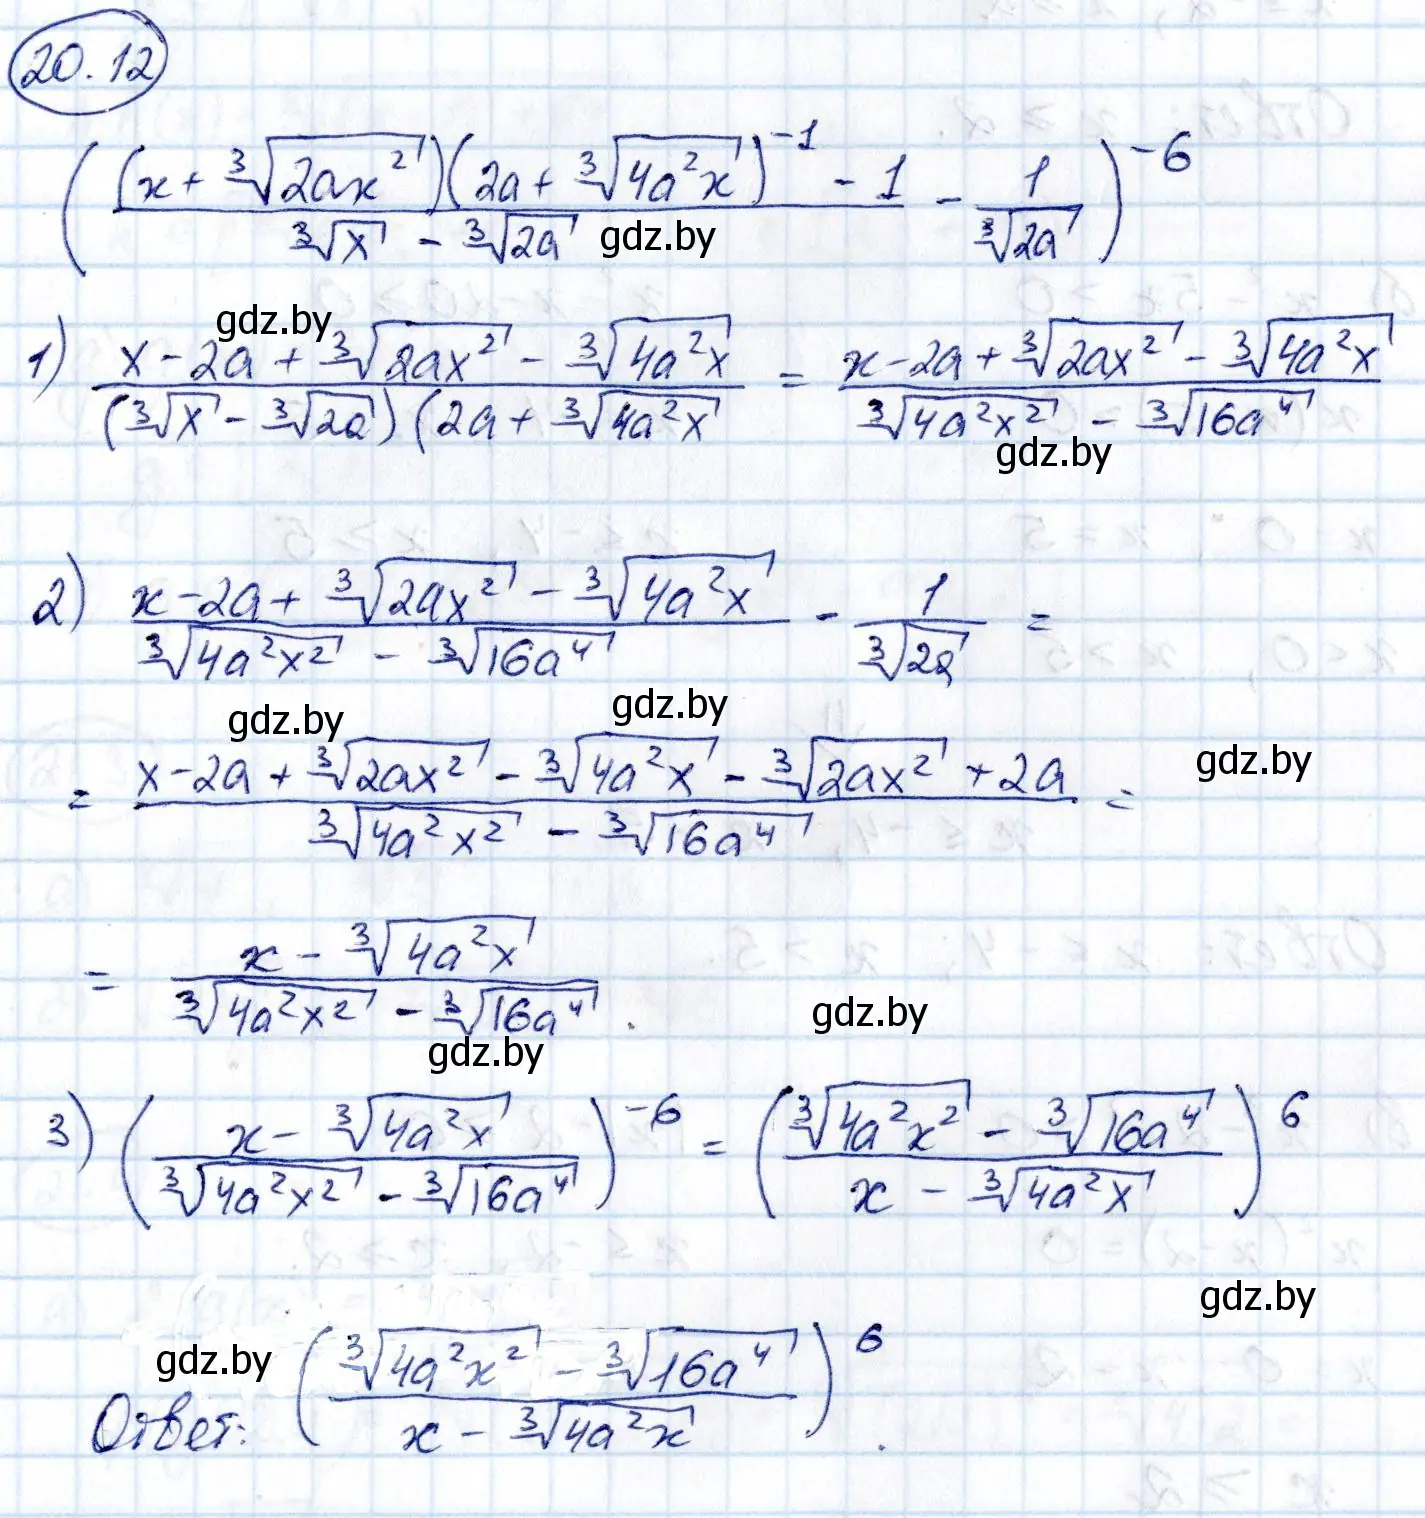 20.12
( ((x + ∛(2ax²))(2a + ∛(4a²x))⁻¹ - 1) / (∛x - ∛(2a)) - 1/∛(2a) )⁻⁶
gdz.by
gdz.by
1) (x - 2a + ∛(2ax²) - ∛(4a²x)) / ((∛x - ∛(2a))(2a + ∛(4a²x)) = (x - 2a + ∛(2ax²) - ∛(4a²x)) / (∛(4a²x²) - ∛(16a⁴))
gdz.by
2) (x - 2a + ∛(2ax²) - ∛(4a²x)) / (∛(4a²x²) - ∛(16a⁴)) - 1/∛(2a) =
gdz.by gdz.by
= (x - 2a + ∛(2ax²) - ∛(4a²x) - ∛(2ax²) + 2a) / (∛(4a²x²) - ∛(16a⁴)) =
gdz.by
= (x - ∛(4a²x)) / (∛(4a²x²) - ∛(16a⁴)).
gdz.by
gdz.by
3) ( (x - ∛(4a²x)) / (∛(4a²x²) - ∛(16a⁴)) )⁻⁶ = ( (∛(4a²x²) - ∛(16a⁴)) / (x - ∛(4a²x)) )⁶
gdz.by
gdz.by
Ответ: ( (∛(4a²x²) - ∛(16a⁴)) / (x - ∛(4a²x)) )⁶.